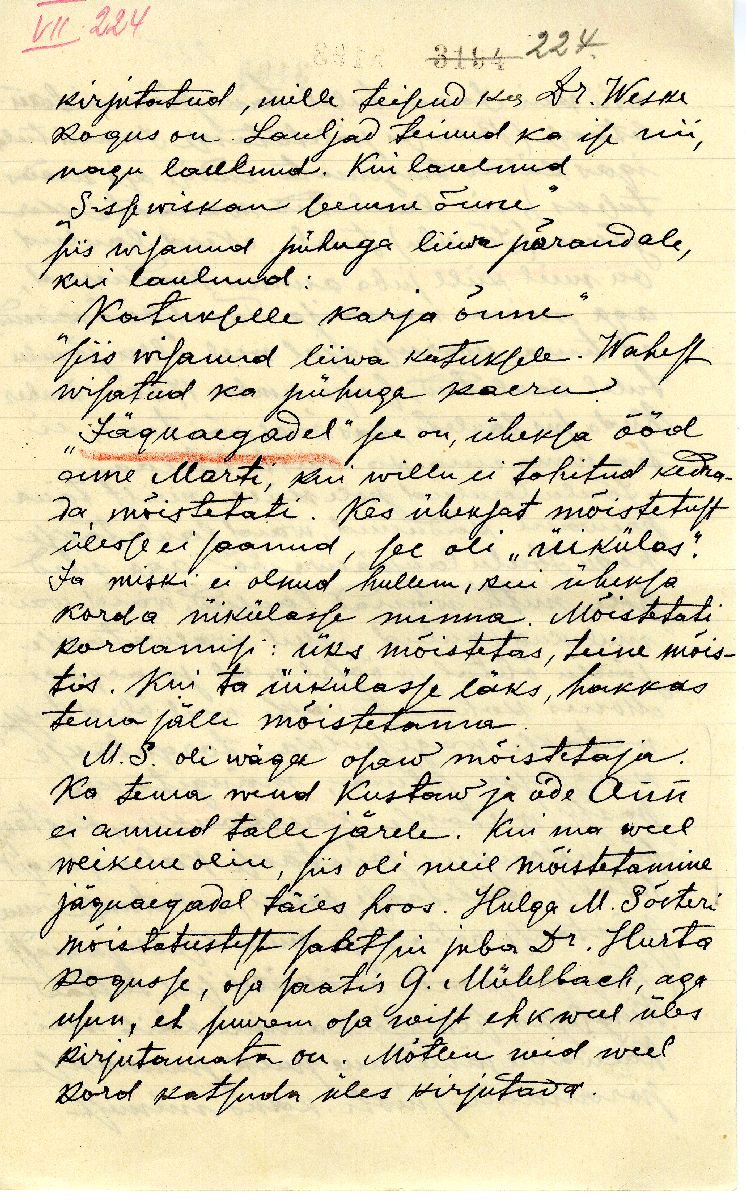 VII 224
3154 224.
kirjutatud, mille teisend ka Dr. Weske
kogus on. Lauljad teinud ka ise nii,
nagu laulnud. Kui laulnud
"Sisse wiskan seemne õnne"
siis wisanud pihuga liiwa põrandale,
kui laulnud:
"Katukselle karja õnne"
siis wisanud liiwa katuksele. Wahest
wisatud ka pihuga kaeru.
"Jäguaegadel" see on, üheksa ööd
enne Marti, kui willu ei tohitud kedra-
da mõistetati. Kes üheksat mõistetust
ülesse ei saanud, see oli "üikülas".
Ja miski ei olnud hullem, kui üheksa
korda üikülasse minna. Mõistetati
kordamisi: üks mõistetas, teine mõis-
tis. Kui ta üikülasse läks, hakkas
tema jälle mõistetama.
M. S. oli wäga osaw mõistetaja.
Ka tema wend Kustaw ja õde Ann
ei annud talle järele. Kui ma weel
weikene olin, siis oli meil mõistetamine
jäguaegadel täies hoos. Hulga M. Sõsteri
mõistatustest saatsin juba Dr. Hurta
kogusse, osa saatis G. Mühlbach, aga
usun, et suurem osa wist ehk weel üles
kirjutamata on. Mõtlen neid weel
kord katsuda üles kirjutada.